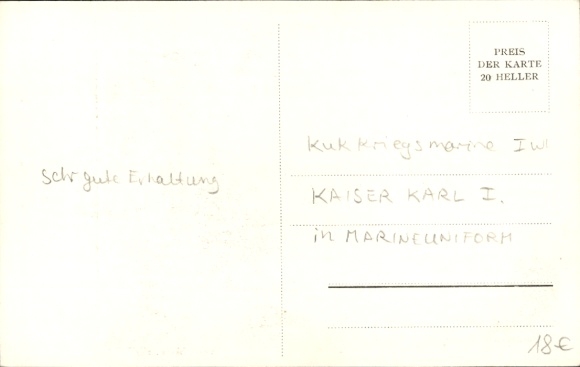 PREIS
DER KARTE
20 HELLER
KuK Kriegsmarine I WI
KAISER KARL I.
in MARINEUNIFORM
Sehr gute Erhaltung
18€